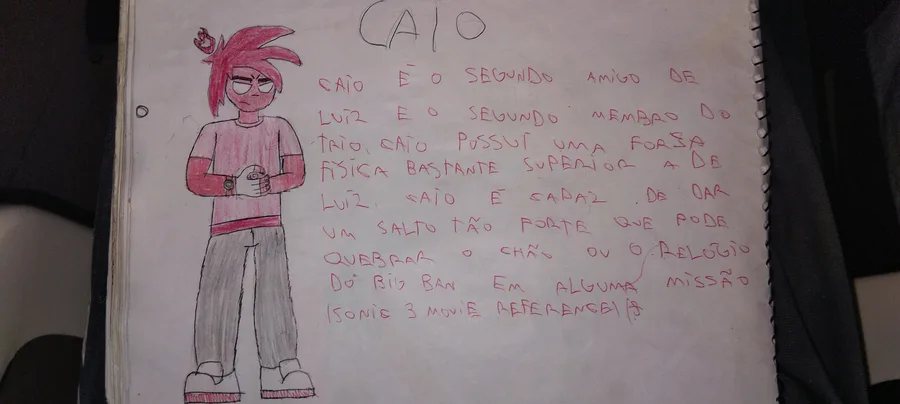 CAIO
CAIO É O SEGUNDO AMIGO DE
LUIZ E O SEGUNDO MEMBRO DO
TRIO, CAIO POSSUÍ UMA FORSA
FÍSICA BASTANTE SUPERIOR A DE
LUIZ, CAIO É CAPAZ DE DAR
UM SALTO TÃO FORTE QUE PODE
QUEBRAR O CHÃO OU O RELÓGIO
DO BIG BAN EM ALGUMA MISSÃO
(SONIC 3 MOVIE REFERENCE)